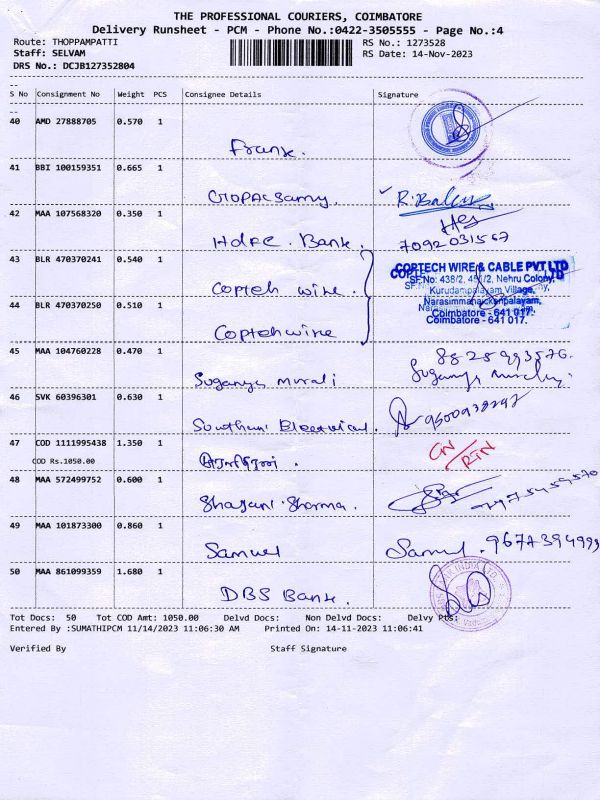 THE PROFESSIONAL COURIERS, COIMBATORE
Delivery Runsheet - PCM - Phone No.:0422-3505555 - Page No.:4
Route: THOPPAMPATTI RS No.: 1273528
Staff: SELVAM RS Date: 14-Nov-2023
DRS No.: DCJB127352804
S No Consignment No Weight PCS Consignee Details Signature
40 AMD 27888705 0.570 1
Franse.
41 BBI 100159351 0.665 1
GOPALSamy. R. Balan
42 MAA 107568320 0.350 1
Hdfc. Bank. 7092031567
43 BLR 470370241 0.540 1
Copteh wire. COPTECH WIRE & CABLE PVT LTD
SF.No: 438/2, 451/2, Nehru Colony,
Kurudampalayam Village,
Narasimmanaickenpalayam,
Coimbatore - 641 017.
44 BLR 470370250 0.510 1
Coptehwire
45 MAA 104760228 0.470 1
Suganya murali 8825993576.
46 SVK 60396301 0.630 1
Electrical.
47 COD 1111995438 1.350 1
COD Rs.1050.00
CN/RTN
48 MAA 572499752 0.600 1
Sharma. 7975459570
49 MAA 101873300 0.860 1
Samuel Samuel. 9677394999
50 MAA 861099359 1.680 1
DBS Bank.
Tot Docs: 50 Tot COD Amt: 1050.00 Delvd Docs: Non Delvd Docs: Delvy Pts:
Entered By :SUMATHIPCM 11/14/2023 11:06:30 AM Printed On: 14-11-2023 11:06:41
Verified By Staff Signature